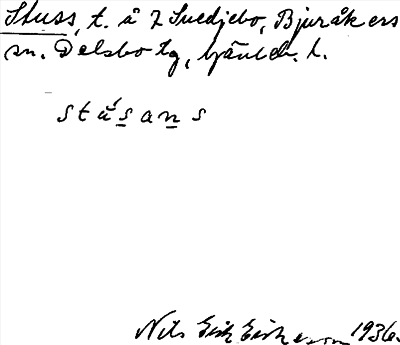 Stuss, t. å 7 Svedjebo, Bjuråkers
sn. Delsbo tg, Gävleb. l.
stu̇́sans
Nils Erik Eriksson 1936.